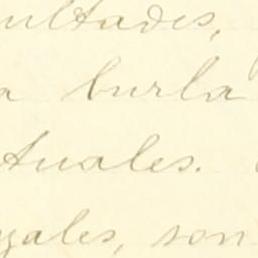 ultades,
a burla
tuales.
gales, son